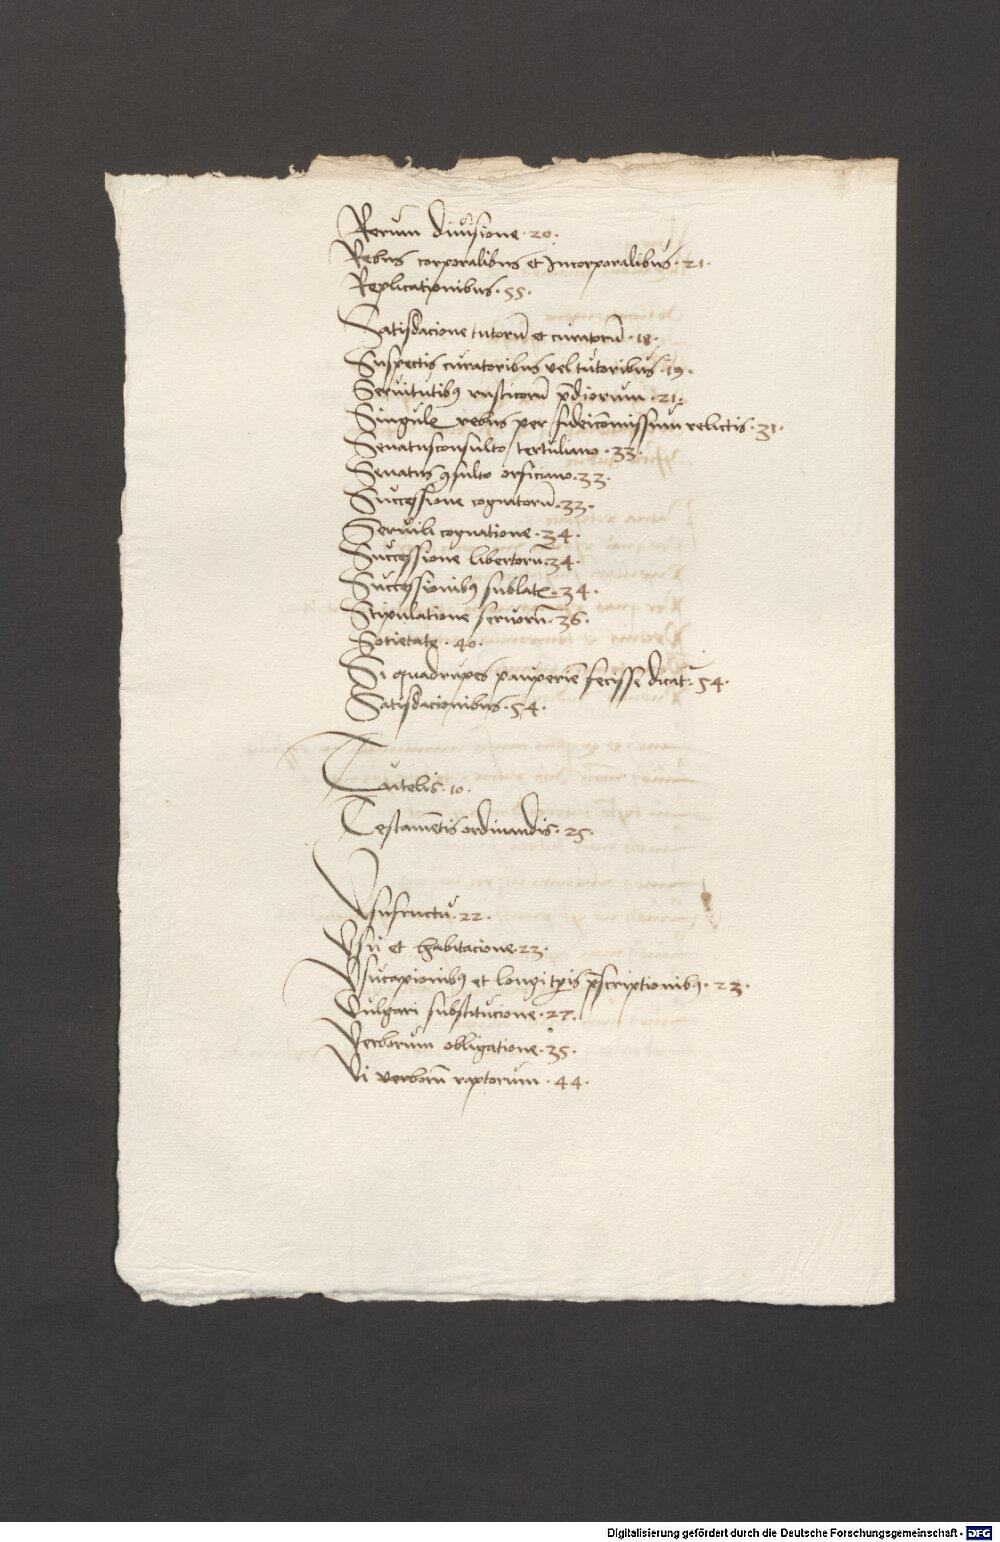 Rerum diuisione · 20 ·
Rebus corporalibus et Incorporalibus · 21 ·
Replicationibus · 55 ·
Satisdacione tutorū et curatorū · 18 ·
Suspectis curatoribus uel tutoribus · 19 ·
Seruitutibꝯ rusticorū p̄diorum · 21 ·
Singulꝭ rebus per fideicōmissum relictis · 31 ·
Senatusconsulto tertuliano · 33 ·
Senatus ꝯsulto orficiano · 33 ·
Successione cognatorū · 33 ·
Seruili cognatione · 34 ·
Successione libertorū · 34 ·
Successionibꝯ sublatꝭ · 34 ·
Stipulatione seruorū · 36 ·
Societate · 40 ·
Si quadrupes pauperiē fecisse dicat᷑ · 54 ·
Satisdacionibus · 54 ·
Tutelis · 10 ·
Testamētis ordinandis · 25 ·
Vsufructu · 22 ·
Vsu et habitacione · 23 ·
Vsucapionibꝯ et longi tꝑis p̄scriptionibꝯ · 23 ·
Vulgari substitucione · 27 ·
Verborum obligatione · 35 ·
Vi uerborū raptorum · 44 ·
Digitalisierung gefördert durch die Deutsche Forschungsgemeinschaft - DFG